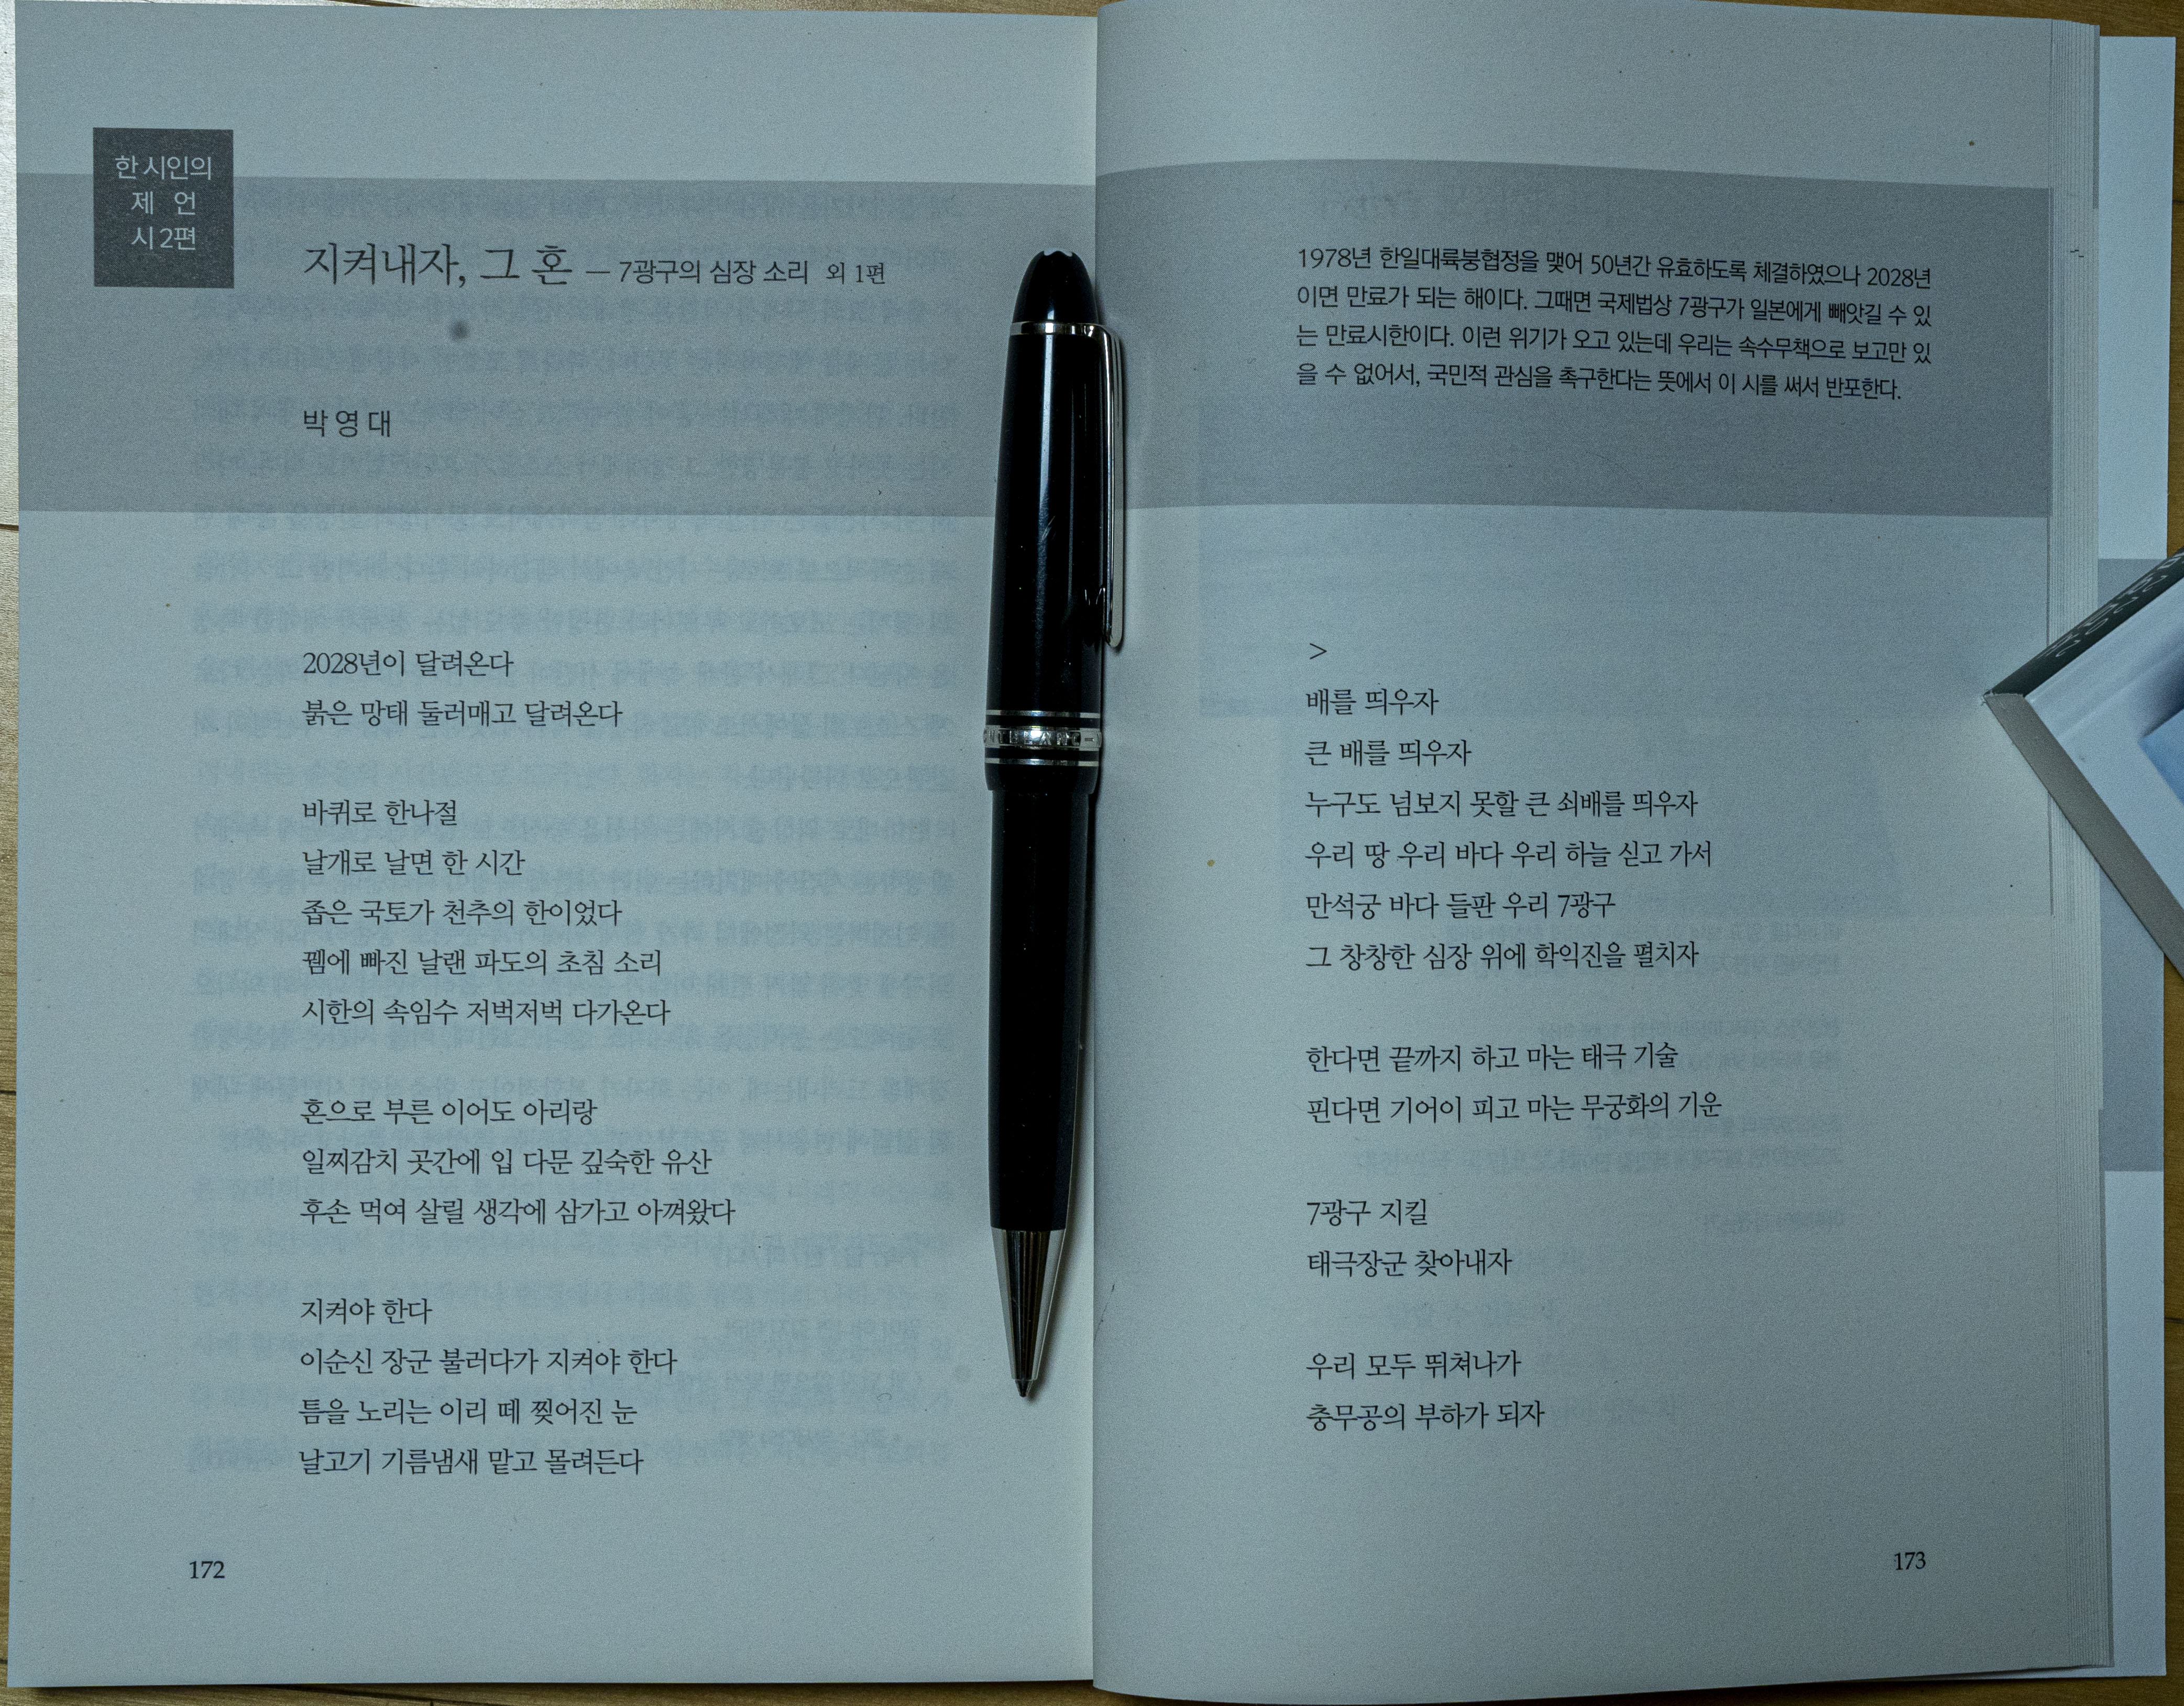 한 시인의
제 언
시 2편
지켜내자, 그 혼 — 7광구의 심장 소리 외 1편
박영대
2028년이 달려온다
붉은 망태 둘러매고 달려온다
바퀴로 한나절
날개로 날면 한 시간
좁은 국토가 천추의 한이었다
뀀에 빠진 날랜 파도의 초침 소리
시한의 속임수 저벅저벅 다가온다
혼으로 부른 이어도 아리랑
일찌감치 곳간에 입 다문 깊숙한 유산
후손 먹여 살릴 생각에 삼가고 아껴왔다
지켜야 한다
이순신 장군 불러다가 지켜야 한다
틈을 노리는 이리 떼 찢어진 눈
날고기 기름냄새 맡고 몰려든다
172
1978년 한일대륙붕협정을 맺어 50년간 유효하도록 체결하였으나 2028년
이면 만료가 되는 해이다. 그때면 국제법상 7광구가 일본에게 빼앗길 수 있
는 만료시한이다. 이런 위기가 오고 있는데 우리는 속수무책으로 보고만 있
을 수 없어서, 국민적 관심을 촉구한다는 뜻에서 이 시를 써서 반포한다.
>
배를 띄우자
큰 배를 띄우자
누구도 넘보지 못할 큰 쇠배를 띄우자
우리 땅 우리 바다 우리 하늘 싣고 가서
만석궁 바다 들판 우리 7광구
그 창창한 심장 위에 학익진을 펼치자
한다면 끝까지 하고 마는 태극 기술
핀다면 기어이 피고 마는 무궁화의 기운
7광구 지킬
태극장군 찾아내자
우리 모두 뛰쳐나가
충무공의 부하가 되자
173